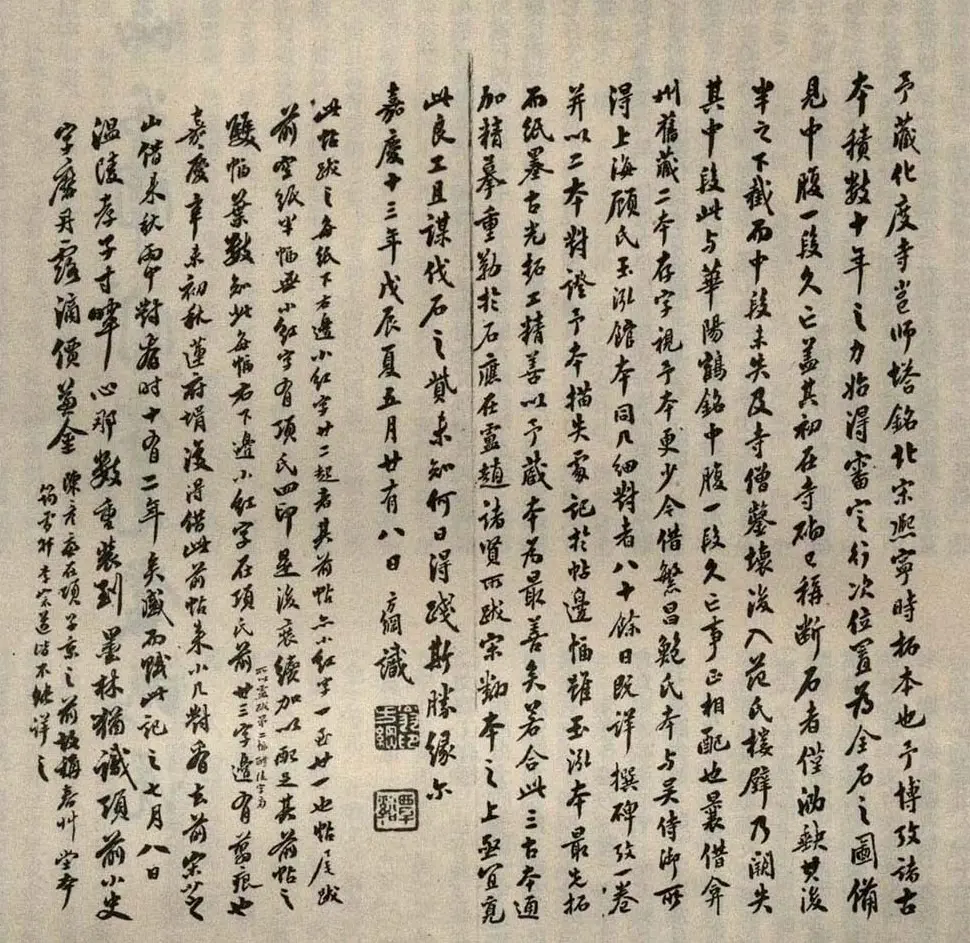 予藏化度寺邕師塔銘北宋熙寧時拓本也予博攷諸古
本積數十年之力始得審定行次位置為全石之圖備
見中腹一段久亡蓋其初在寺砌已稱斷石者僅泐缺其後
半之下截而中段未失及寺僧鑿壞後入范氏樓壁乃闕失
其中段此與華陽鶴銘中腹一段久亡事正相配也曩借弇
州舊藏二本存字視予本更少今借繁昌鮑氏本與吳侍御所
得上海顧氏玉泓館本同几細對者八十餘日既詳撰碑攷一卷
并以二本對證予本描失處記於帖邊幅雖玉泓本最先拓
而紙墨古光拓工精善以予藏本為最善矣若合此三古本通
加精摹重勒於石應在靈趙諸賢所跋宋翻本之上亟宜覓
此良工且謀伐石之貲未知何日得踐斯勝緣尔
嘉慶十三年戊辰夏五月廿有八日 方綱識
此帖跋之每紙下右邊小紅字廿二起者其前帖亦小紅字一至廿一也帖尾跋
前空紙半幅無小紅字有項氏四印是後來續加以配足其前帖之
雙幅葉數知此每幅右下邊小紅字在項氏前廿三字邊有翦痕也
嘉慶辛未初秋蓮府壻復得借此前帖來小几對看去前宋芝
山借來秋雨中對看時十有二年矣感而賦此記之七月八日
溫陵存子寸畔心那數重裝到墨林猶識項前小史
字磨丹露滴價兼金 陳彥廉在項子京之前故稱春艸堂本
不能詳之